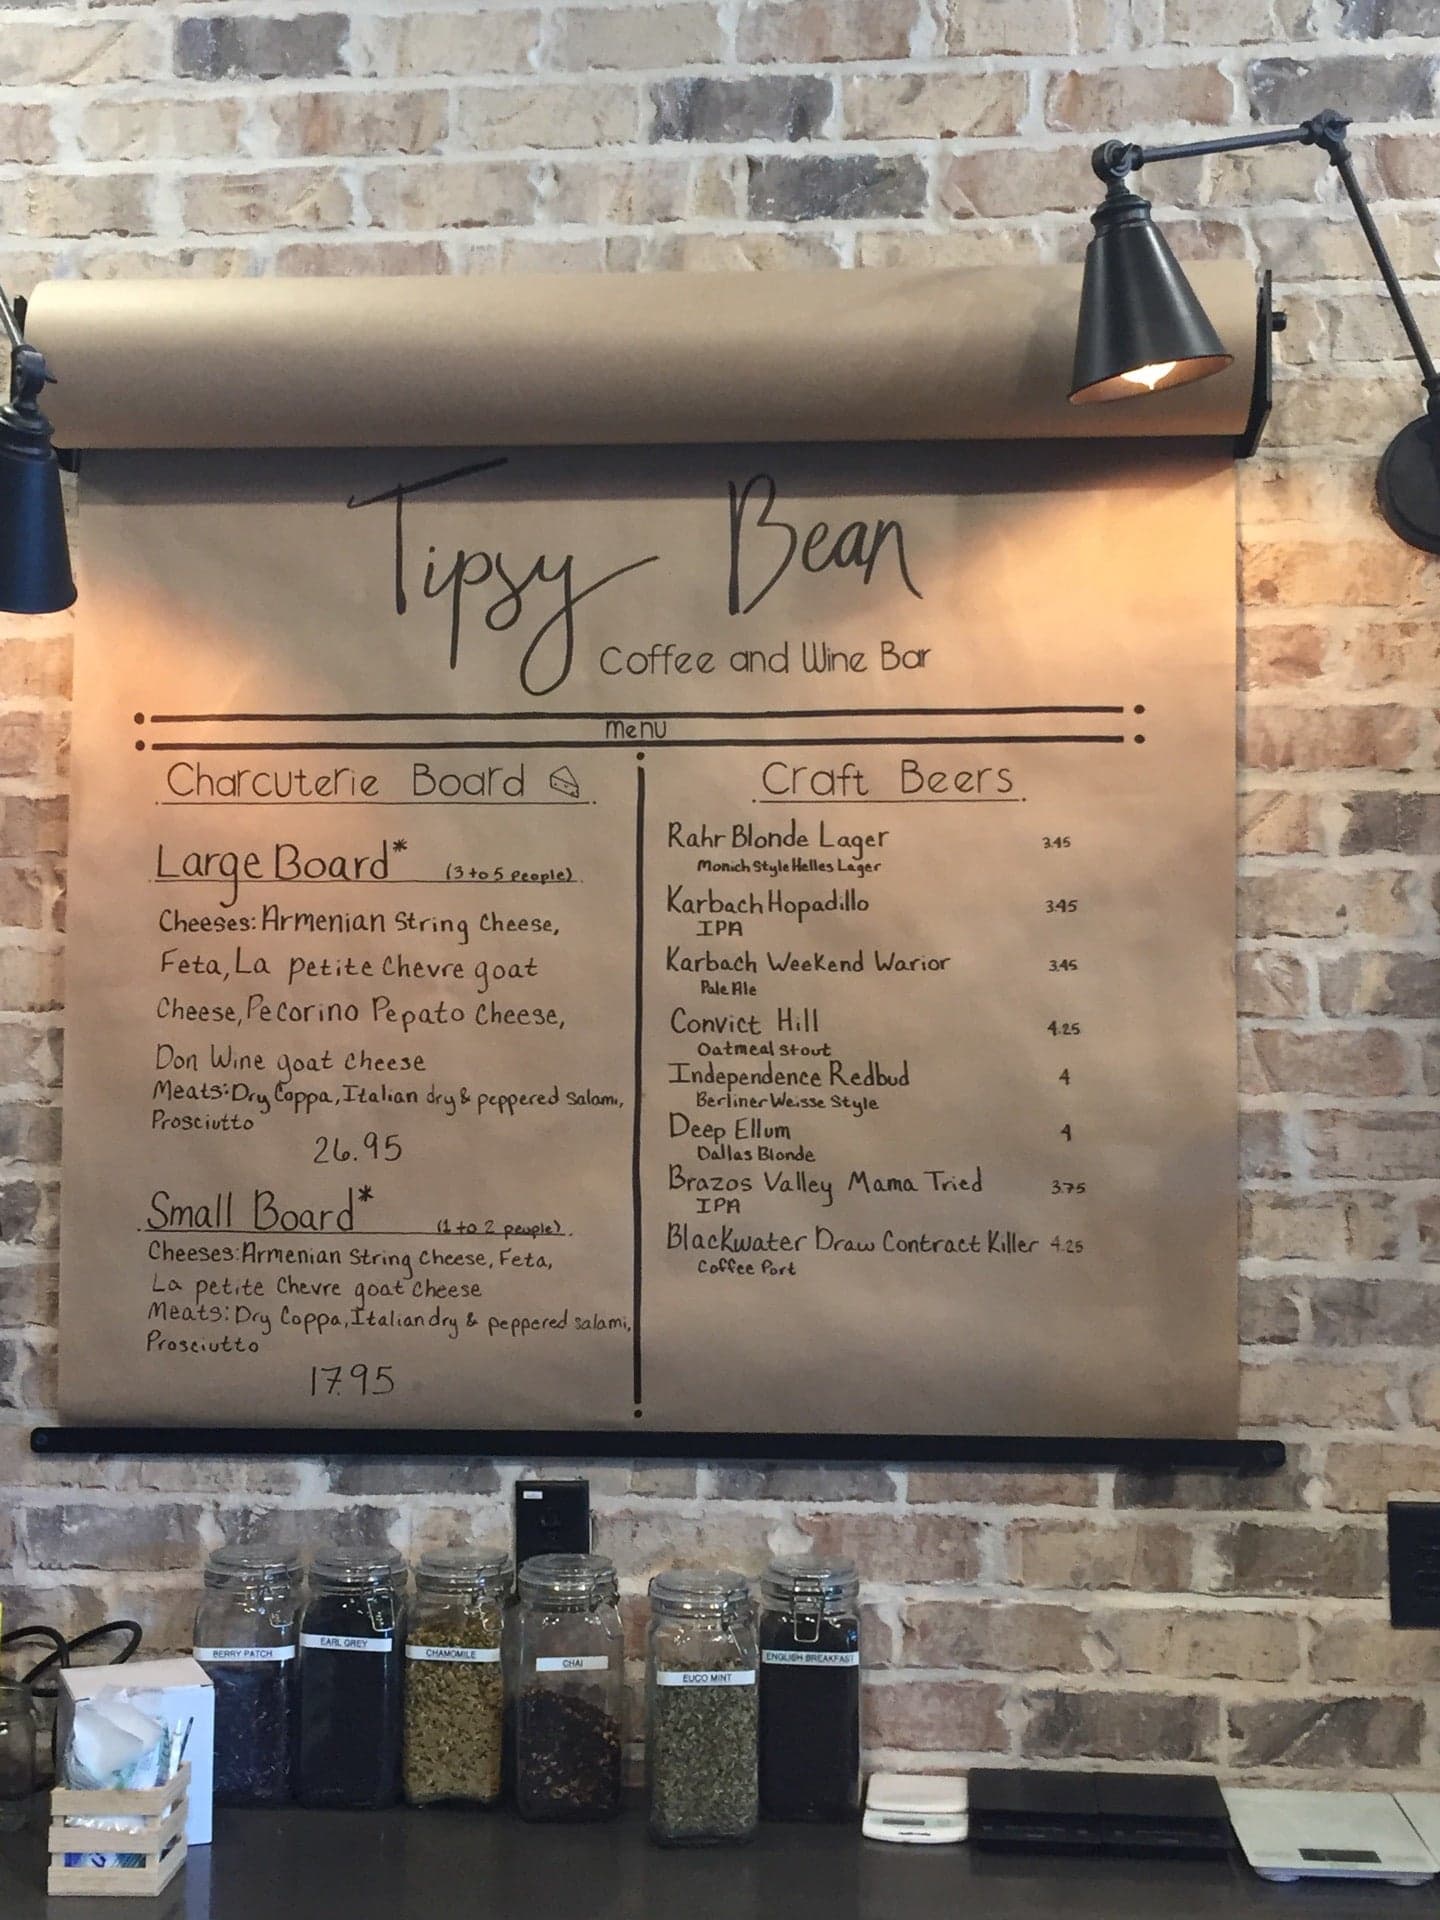 Tipsy Bean
Coffee and Wine Bar
menu
Charcuterie Board
Large Board* (3 to 5 people)
Cheeses: Armenian String Cheese,
Feta, La petite Chevre goat
Cheese, Pecorino Pepato Cheese,
Don Wine goat cheese
Meats: Dry Coppa, Italian dry & peppered salami,
Prosciutto
26.95
Small Board* (1 to 2 people)
Cheeses: Armenian String Cheese, Feta,
La petite Chevre goat cheese
Meats: Dry Coppa, Italian dry & peppered salami,
Prosciutto
17.95
Craft Beers
Rahr Blonde Lager 3.45
Monich Style Helles Lager
Karbach Hopadillo 3.45
IPA
Karbach Weekend Warior 3.45
Pale Ale
Convict Hill 4.25
Oatmeal Stout
Independence Redbud 4
Berliner Weisse Style
Deep Ellum 4
Dallas Blonde
Brazos Valley Mama Tried 3.75
IPA
Blackwater Draw Contract Killer 4.25
Coffee Port
BERRY PATCH
EARL GREY
CHAMOMILE
CHAI
EUCO MINT
ENGLISH BREAKFAST